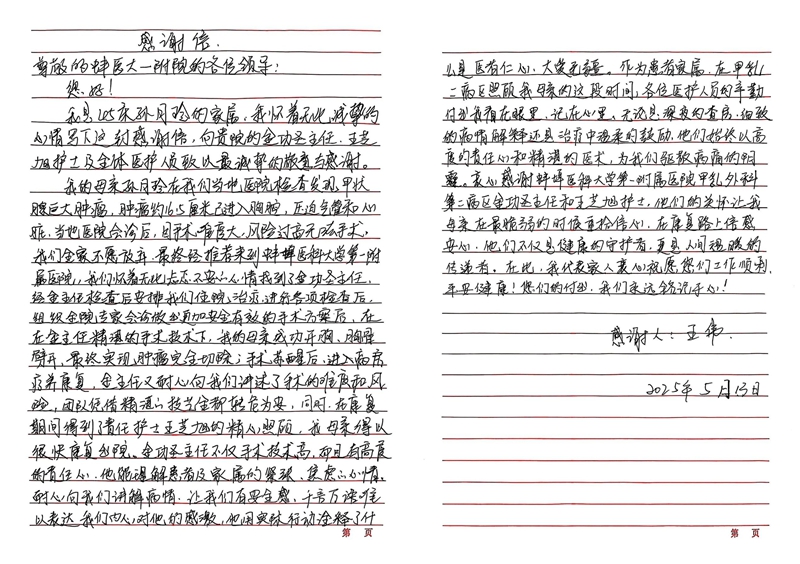 感谢信.
尊敬的蚌医大一附院的各位领导:
您好!
我是45床孙月玲的家属,我怀着无比诚挚的
心情写下这封感谢信,向贵院的金功圣主任、王芝
旭护士及全体医护人员致以最诚挚的敬意与感谢。
我的母亲孙月玲在我们当地医院检查发现甲状
腺巨大肿瘤,肿瘤约16.5厘米已进入胸腔,压迫气管和心
脏,当地医院会诊后,因手术难度大,风险过高无法手术,
我们全家不愿放弃,最终经推荐来到蚌埠医科大学第一附
属医院,我们怀着无比忐忑不安心情找到了金功圣主任,
经金主任检查后安排我们住院治疗,进行各项检查后,
组织全院专家会诊做出更加安全有效的手术方案后,在
在金主任精湛的手术技术下,我的母亲成功开胸、胸骨
劈开、最终实现肿瘤完全切除;手术苏醒后,进入病房
疗养康复,金主任又耐心向我们讲述了手术的难度和风
险,团队凭借精湛的技艺全都转危为安,同时,在康复
期间得到了责任护士王芝旭的精心照顾,我母亲得以
很快康复出院。金功圣主任不仅手术技术高,而且有高度
的责任心,他能理解患者及家属的紧张、焦虑的心情。
耐心向我们讲解病情,让我们有安全感,千言万语难
以表达我们内心对他的感激,他用实际行动诠释了什
么是医者仁心、大爱无疆。作为患者家属,在甲乳
二病区照顾我母亲的这段时间,各位医护人员的辛勤
付出我看在眼里、记在心里。无论是深夜的查房、细致
的病情解释还是治疗中温柔的鼓励,他们始终以高
度的责任心和精湛的医术,为我们驱散病痛的阴
霾。衷心感谢蚌埠医科大学第一附属医院甲乳外科
第二病区金功圣主任和王芝旭护士,他们的关怀让我
母亲在最脆弱的时候重拾信心,在康复路上倍感
安心。他们不仅是健康的守护者,更是人间温暖的
传递者。在此,我代表家人衷心祝愿您们工作顺利,
平安健康!您们的付出,我们永远铭记于心!
感谢人:王伟.
2025年5月13日
第 页
第 页